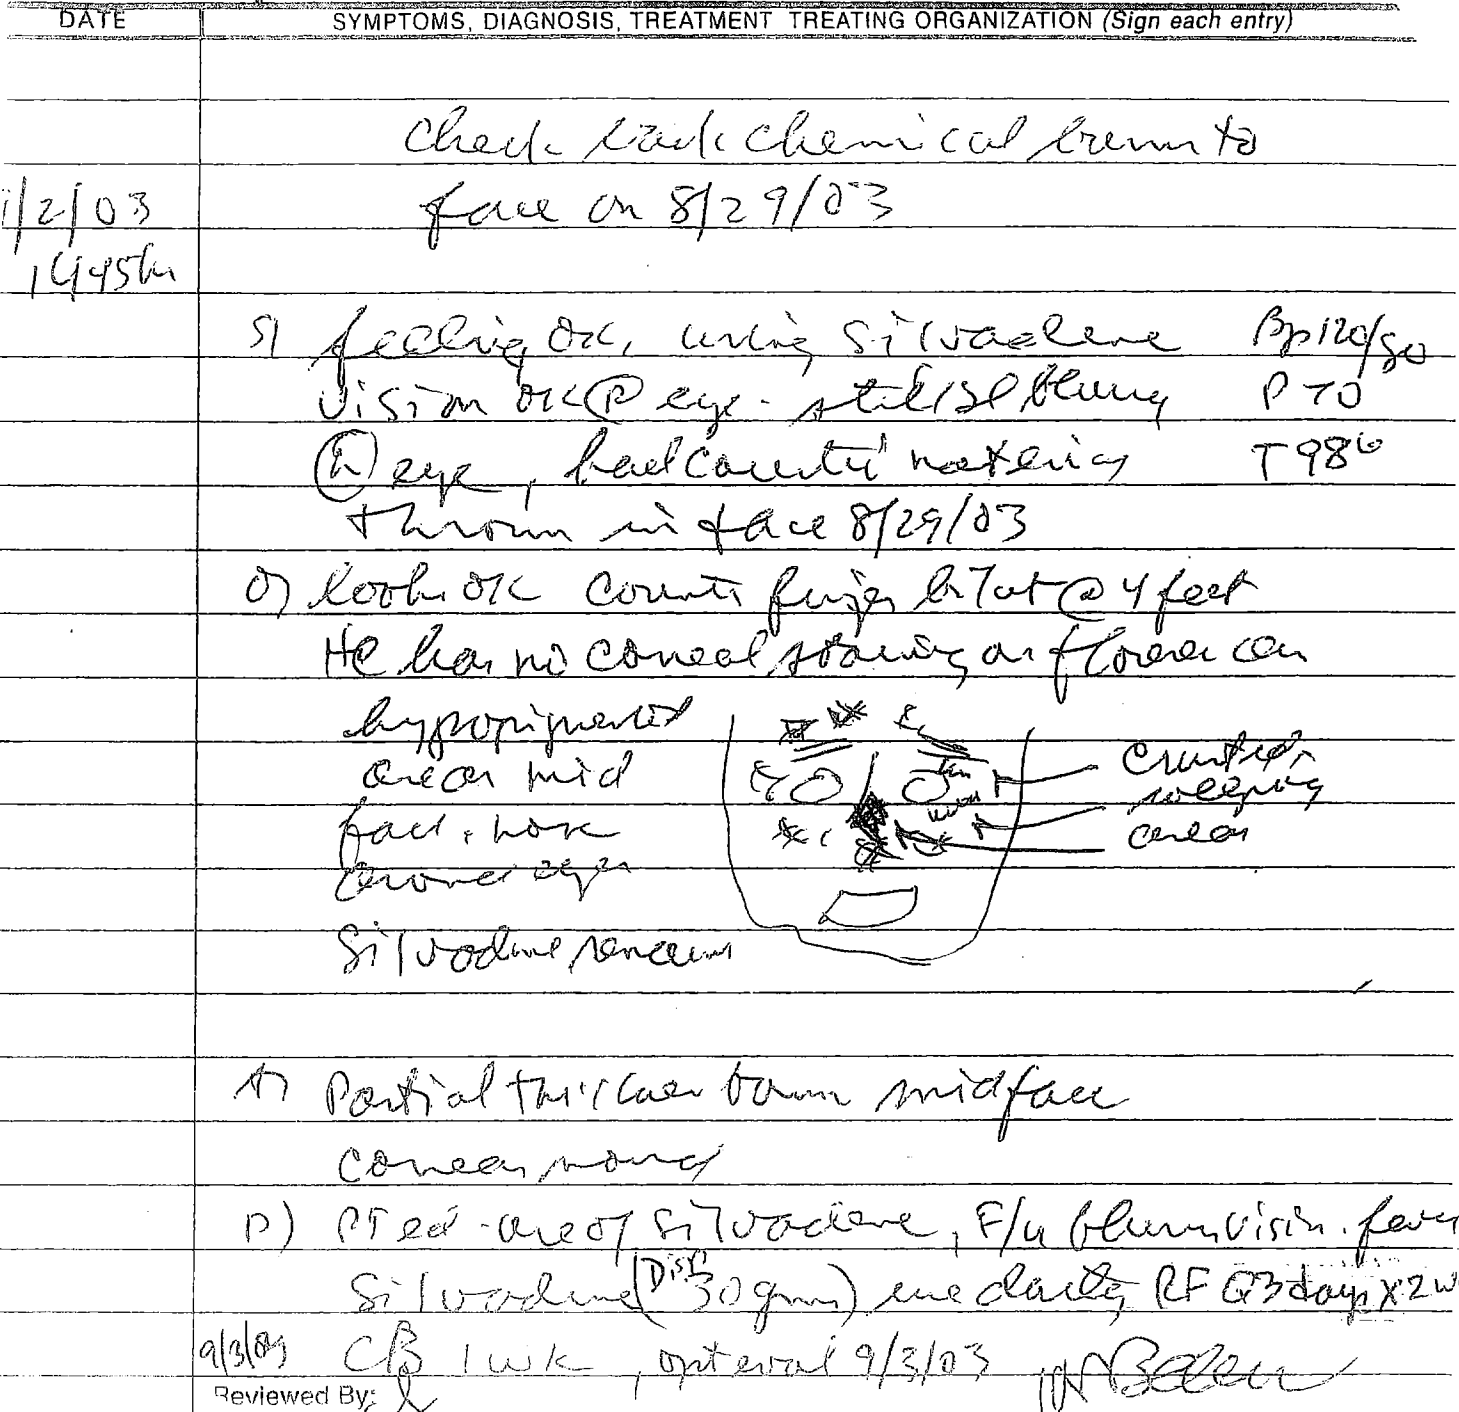 DATE SYMPTOMS, DIAGNOSIS, TREATMENT TREATING ORGANIZATION (Sign each entry)
Check back chemical burn to
/2/03 face on 8/29/03
1445h
S) feeling OK, using Silvadene Bp 120/80
vision OK (R) eye - still sl blurry P 70
(L) eye, had caustic material T 98⁶
thrown in face 8/29/03
O) looks OK counts fingers bilat @ 4 feet
He has no corneal staining on
hypopigmented
areas mid crusted,
face, nose weeping
around eyes areas
Silvadene
A) Partial thickness burn midface
corneas
P) PT ed - use of Silvadene, F/u blurry vision. fever
Silvadene (Disp 30 gms) use daily RF Q3 days x 2 w
9/3/03 CB 1 wk, opt eval 9/3/03
Reviewed By: